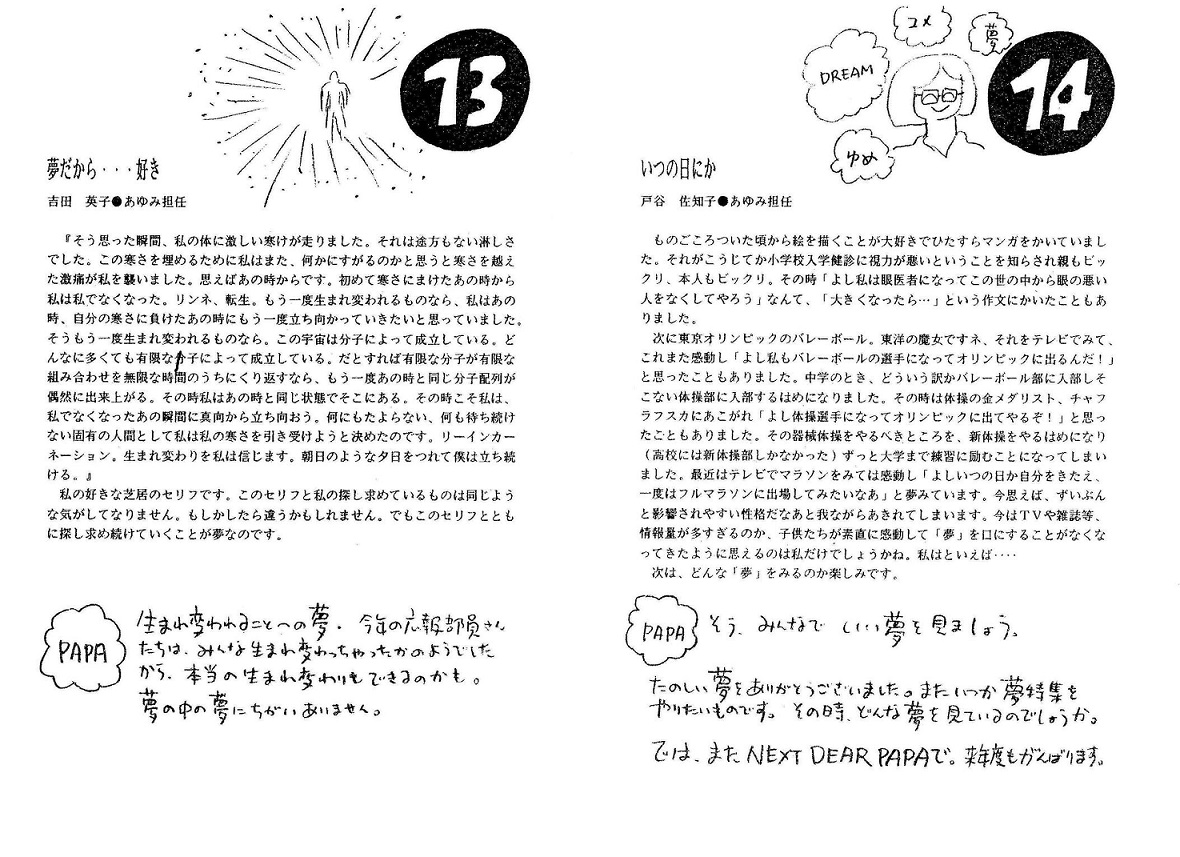 13
夢だから・・・好き
吉田 英子●あゆみ担任
『そう思った瞬間、私の体に激しい寒けが走りました。それは途方もない淋しさ
でした。この寒さを埋めるために私はまた、何かにすがるのかと思うと寒さを越え
た激痛が私を襲いました。思えばあの時からです。初めて寒さにまけたあの時から
私は私でなくなった。リンネ、転生。もう一度生まれ変われるものなら、私はあの
時、自分の寒さに負けたあの時にもう一度立ち向かっていきたいと思っていました。
そうもう一度生まれ変われるものなら。この宇宙は分子によって成立している。ど
んなに多くても有限な分子によって成立している。だとすれば有限な分子が有限な
組み合わせを無限な時間のうちにくり返すなら、もう一度あの時と同じ分子配列が
偶然に出来上がる。その時私はあの時と同じ状態でそこにある。その時こそ私は、
私でなくなったあの瞬間に真向から立ち向おう。何にもたよらない、何も待ち続け
ない固有の人間として私は私の寒さを引き受けようと決めたのです。リーインカー
ネーション。生まれ変わりを私は信じます。朝日のような夕日をつれて僕は立ち続
ける。』
私の好きな芝居のセリフです。このセリフと私の探し求めているものは同じよう
な気がしてなりません。もしかしたら違うかもしれません。でもこのセリフととも
に探し求め続けていくことが夢なのです。
PAPA
生まれ変われることへの夢・今年の広報部員さん
たちは、みんな生まれ変わっちゃったかのようでした
から、本当の生まれ変わりもできるのかも。
夢の中の夢にちがいありません。
ユメ
夢
DREAM
ゆめ
14
いつの日にか
戸谷 佐知子●あゆみ担任
ものごころついた頃から絵を描くことが大好きでひたすらマンガをかいていまし
た。それがこうじてか小学校入学健診に視力が悪いということを知らされ親もビッ
クリ、本人もビックリ。その時「よし私は眼医者になってこの世の中から眼の悪い
人をなくしてやろう」なんて、「大きくなったら…」という作文にかいたこともあ
りました。
次に東京オリンピックのバレーボール。東洋の魔女ですネ、それをテレビでみて、
これまた感動し「よし私もバレーボールの選手になってオリンピックに出るんだ！」
と思ったこともありました。中学のとき、どういう訳かバレーボール部に入部しそ
こない体操部に入部するはめになりました。その時は体操の金メダリスト、チャフ
ラフスカにあこがれ「よし体操選手になってオリンピックに出てやるぞ！」と思っ
たこともありました。その器械体操をやるべきところを、新体操をやるはめになり
（高校には新体操部しかなかった）ずっと大学まで練習に励むことになってしまい
ました。最近はテレビでマラソンをみては感動し「よしいつの日か自分をきたえ、
一度はフルマラソンに出場してみたいなあ」と夢みています。今思えば、ずいぶん
と影響されやすい性格だなあと我ながらあきれてしまいます。今はＴＶや雑誌等、
情報量が多すぎるのか、子供たちが素直に感動して「夢」を口にすることがなくな
ってきたように思えるのは私だけでしょうかね。私はといえば‥‥
次は、どんな「夢」をみるのか楽しみです。
PAPA
そう、みんなで いい夢を見ましょう。
たのしい夢をありがとうございました。またいつか夢特集を
やりたいものです。その時、どんな夢を見ているのでしょうか。
では、またNEXT DEAR PAPAで。来年度もがんばります。